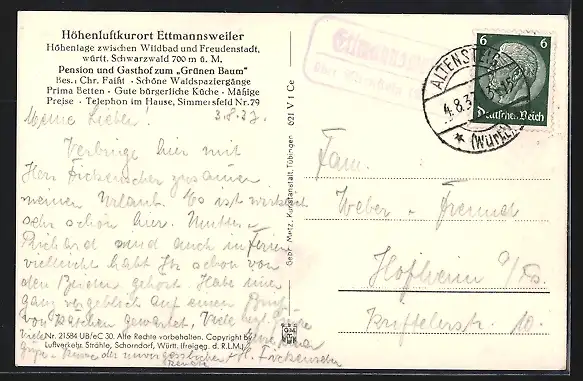 Höhenluftkurort Ettmannsweiler
Höhenlage zwischen Wildbad und Freudenstadt,
württ. Schwarzwald 700 m ü. M.
Pension und Gasthof zum „Grünen Baum“
Bes.: Chr. Faißt · Schöne Waldspaziergänge
Prima Betten · Gute bürgerliche Küche · Mäßige
Preise · Telephon im Hause, Simmersfeld Nr. 79
Meine Lieben! 3.8.37.
Verbringe hier mit
Herr Fickenscher zusamen
meinen Urlaub. Es ist wirklich
sehr schön hier. Mutter
Richard sind auch in Ferien
vielleicht habt Ihr schon von
den Beiden gehört. Habe nun
ganz vergeblich auf einen Brief
von gewartet, Viele
Nr. 21584 UB/eC 30. Alle Rechte vorbehalten. Copyright by
Luftverkehr Strähle, Schorndorf, Württ. (freigeg. d. R.L.M.)
H. Fickenscher
Gebr. Metz, Kunstanstalt, Tübingen 621 V I Ce
Ettmannsweiler
über
ALTENSTEIG
4.8.37
(Württ.)
6 6
Deutsches Reich
Fam.
Weber - Freund
Hofheim a/Ts.
Kriftelerstr. 10.